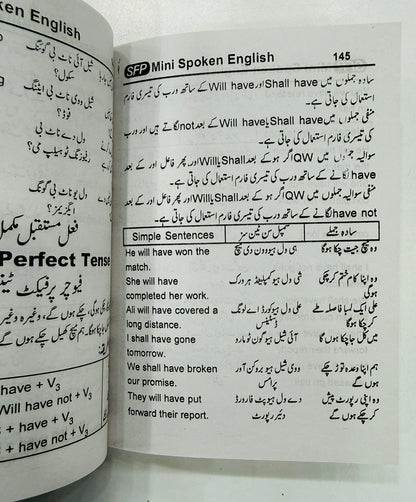 SFP Mini Spoken English 145
سادہ جملوں میں Shall have اور Will have کے ساتھ ورب کی تیسری فارم
استعمال کی جاتی ہے۔
منفی جملوں میں Shall have یا Will have کے بعد not لگاتے ہیں اور ورب
کی تیسری فارم استعمال کی جاتی ہے۔
سوالیہ جملوں میں QW اگر ہو کے بعد Shall یا Will اور پھر فاعل اور کے بعد
have لگانے کے ساتھ ورب کی تیسری فارم استعمال کی جاتی ہے۔
منفی سوالیہ جملوں میں QW اگر ہو کے بعد Shall یا Will اور پھر فاعل اور کے بعد
have not لگانے کے ساتھ ورب کی تیسری فارم استعمال کی جاتی ہے۔
Simple Sentences سمپل سن ٹین سز سادہ جملے
He will have won the ہی ول ہیو ون دی میچ وہ میچ جیت چکا ہوگا
match.
She will have شی ول ہیو کمپلیٹڈ ہر ورک وہ اپنا کام ختم کر چکی
completed her work. ہوگی
Ali will have covered a علی ول ہیو کورڈ اے لونگ علی ایک لمبا فاصلہ طے
long distance. ڈسٹینس کر چکا ہوگا
I shall have gone آئی شیل ہیو گون ٹومارو میں کل جا چکا ہوں گا
tomorrow.
We shall have broken ووی شیل ہیو بروکن آور ہم اپنا وعدہ توڑ چکے
our promise. پرامس ہوں گے
They will have put دے ول ہیو پٹ فارورڈ وہ اپنی رپورٹ پیش
forward their report. دیئر رپورٹ کر چکے ہوں گے
ken English
شیل آئی ناٹ بی گوئنگ
سکول؟
شیل ووی ناٹ بی ایٹنگ
فوڈ؟
ول دے ناٹ بی
ول یو ناٹ بی گوئنگ
فعل مستقبل مکمل
Perfect Tense
فیوچر پرفیکٹ ٹینس
have + V3
Will have not + V3
+ have + V3
+ have not + V3